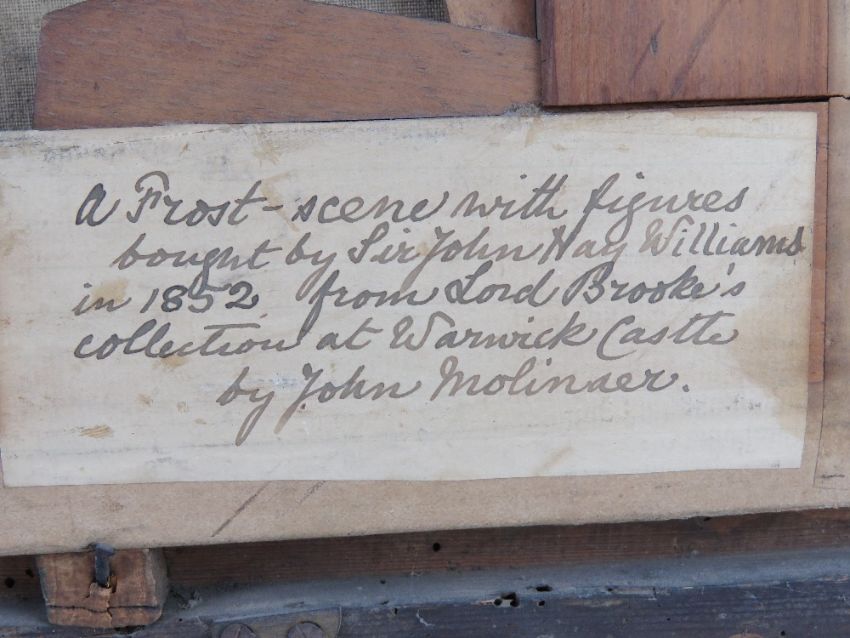 A Frost-scene with figures
bought by Sir John Hay Williams
in 1852 from Lord Brooke's
collection at Warwick Castle
by John Molinaer.